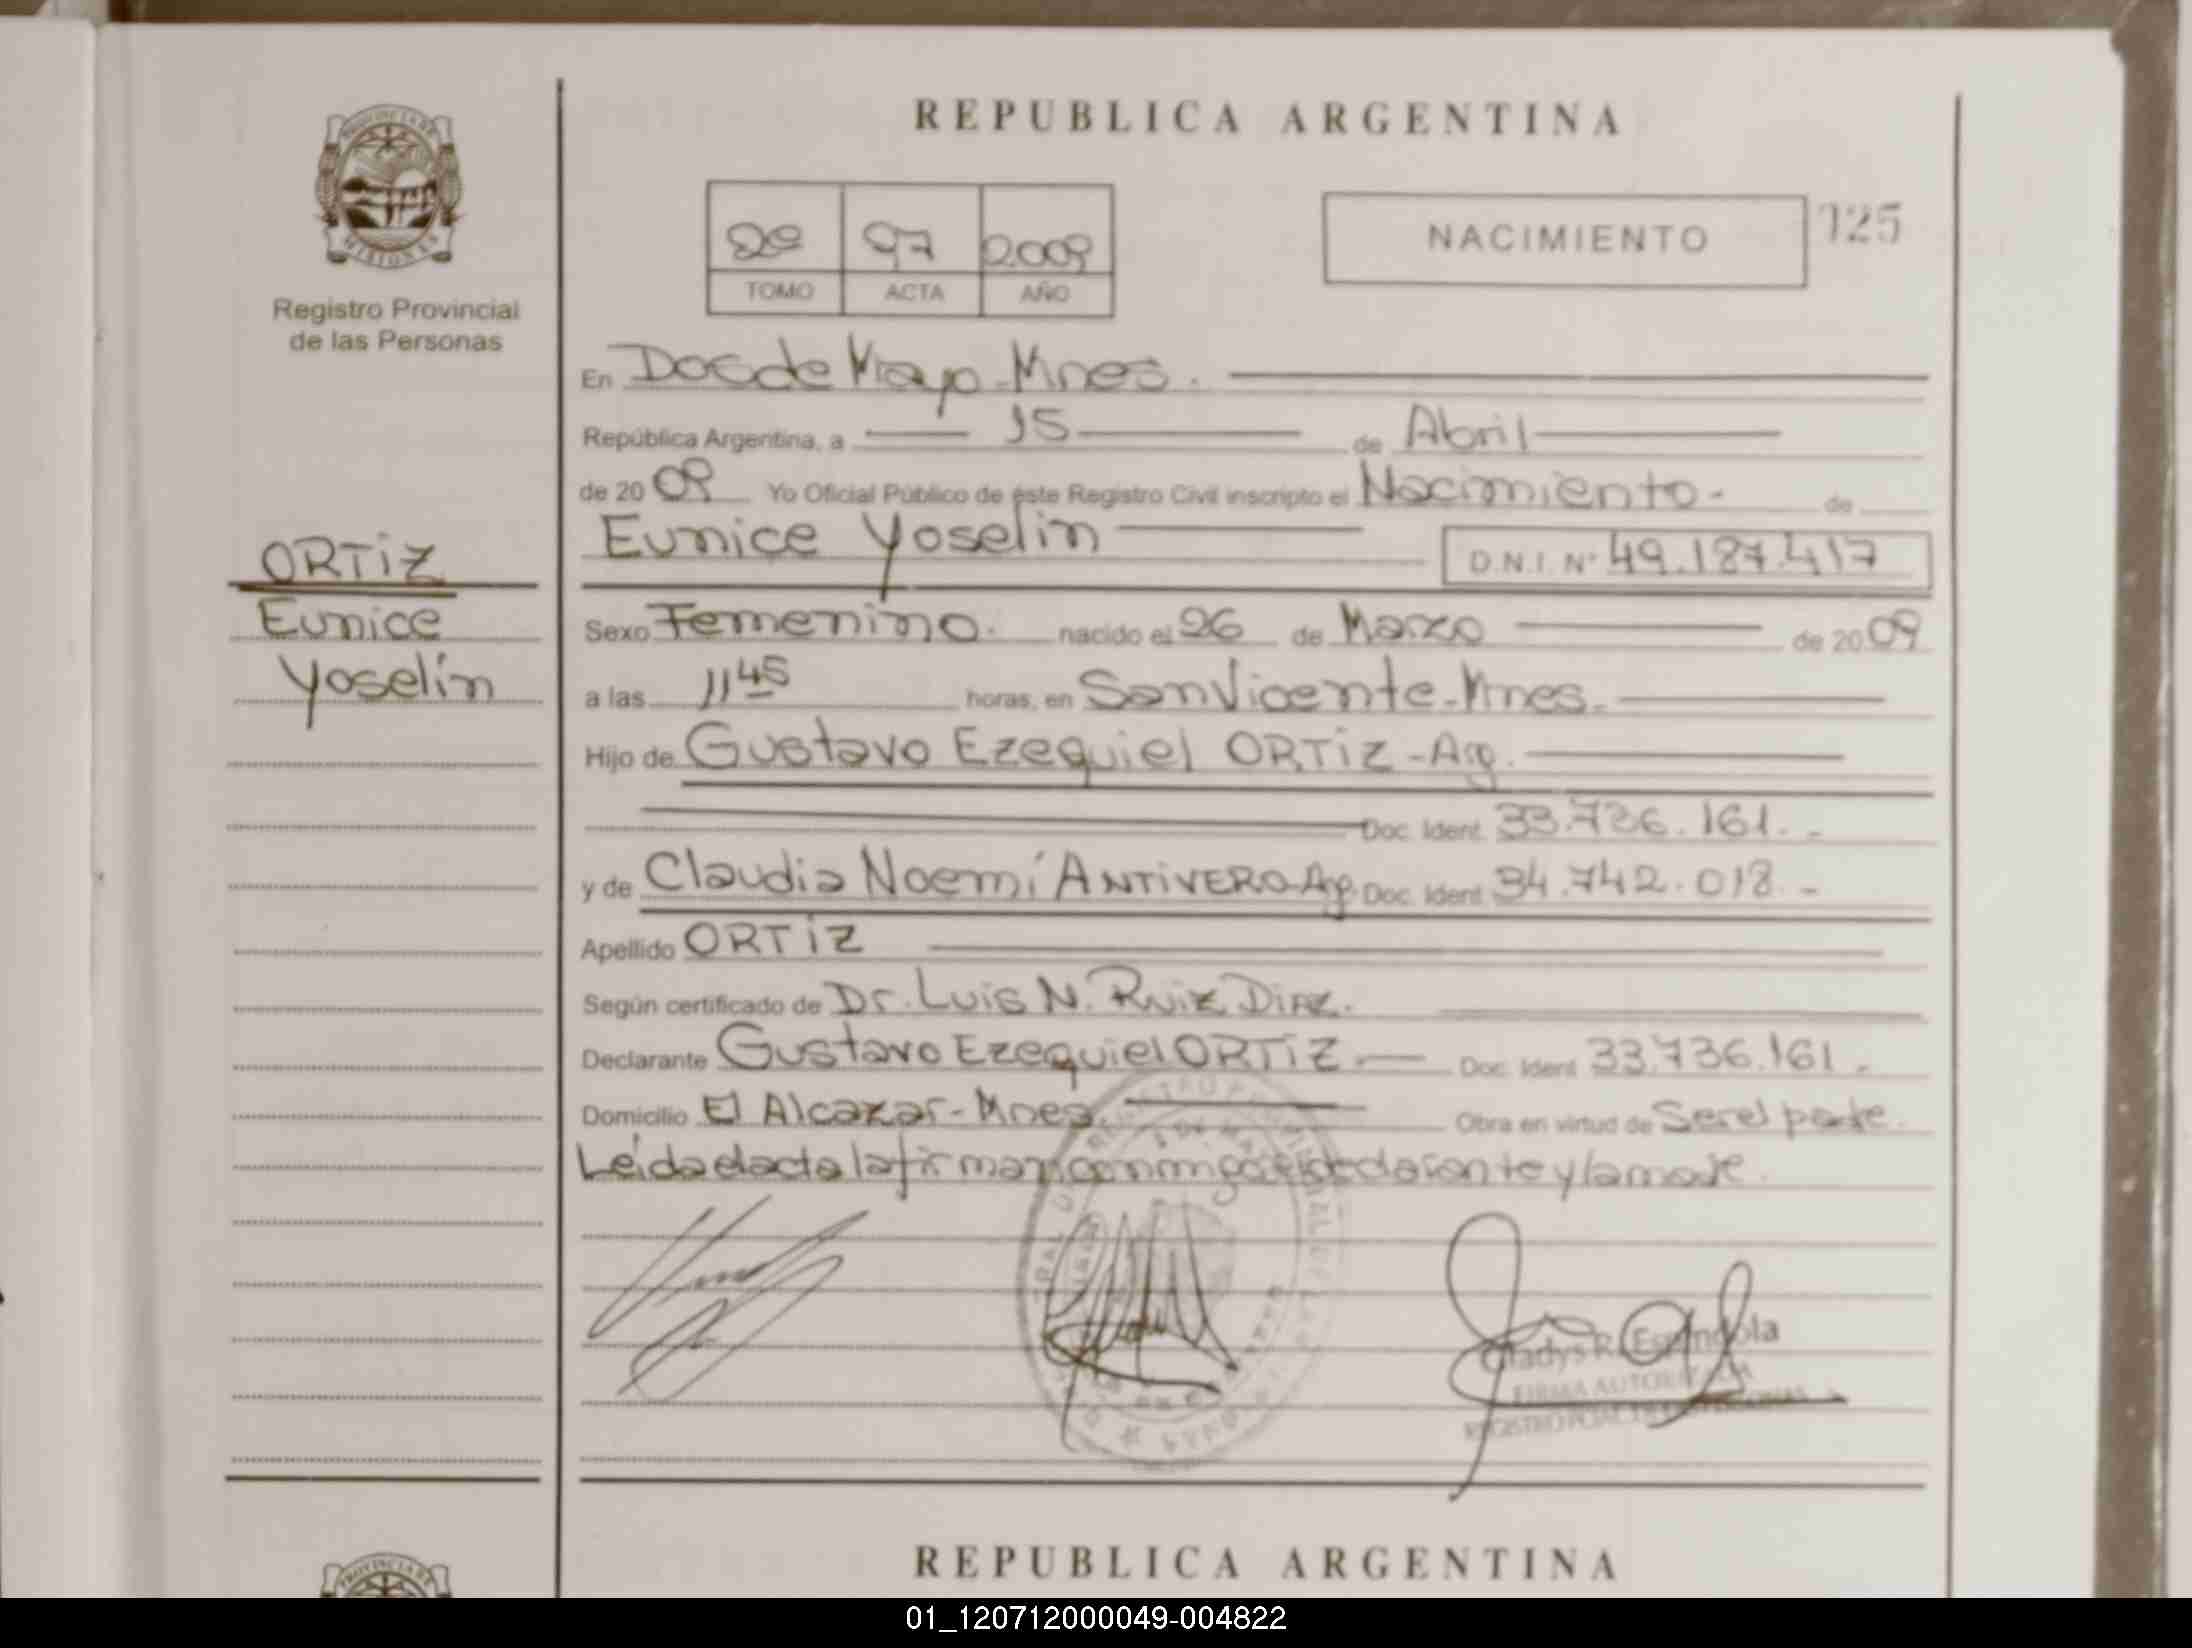 REPUBLICA ARGENTINA
PROVINCIA DE
MISIONES
Registro Provincial
de las Personas
2º 97 2009
TOMO ACTA AÑO
NACIMIENTO
125
En Dos de Mayo - Mnes.
República Argentina, a 15 de Abril
de 2009 Yo Oficial Público de éste Registro Civil inscripto el Nacimiento - de
Eunice Yoselin D.N.I. Nº 49.187.417
ORTiZ
Eunice
Yoselín
Sexo Femenino. nacido el 26 de Marzo de 2009
a las 11 45 horas, en San Vicente - Mnes.
Hijo de Gustavo Ezequiel ORTiZ - Arg.
Doc. Ident. 33.736.161. -
y de Claudia Noemí ANTiVERO Arg. Doc. Ident. 34.742.018. -
Apellido ORTiZ
Según certificado de Dr. Luis N. Ruiz Diaz.
Declarante Gustavo Ezequiel ORTiZ. Doc. Ident 33.736.161. -
Domicilio El Alcazar - Mnes. Obra en virtud de Ser el parte.
Leída el acta la firman conmigo el declarante y la madre.
Gladys R. Espíndola
FIRMA AUTORIZADA
REPUBLICA ARGENTINA
PROVINCIA DE
01_120712000049-004822